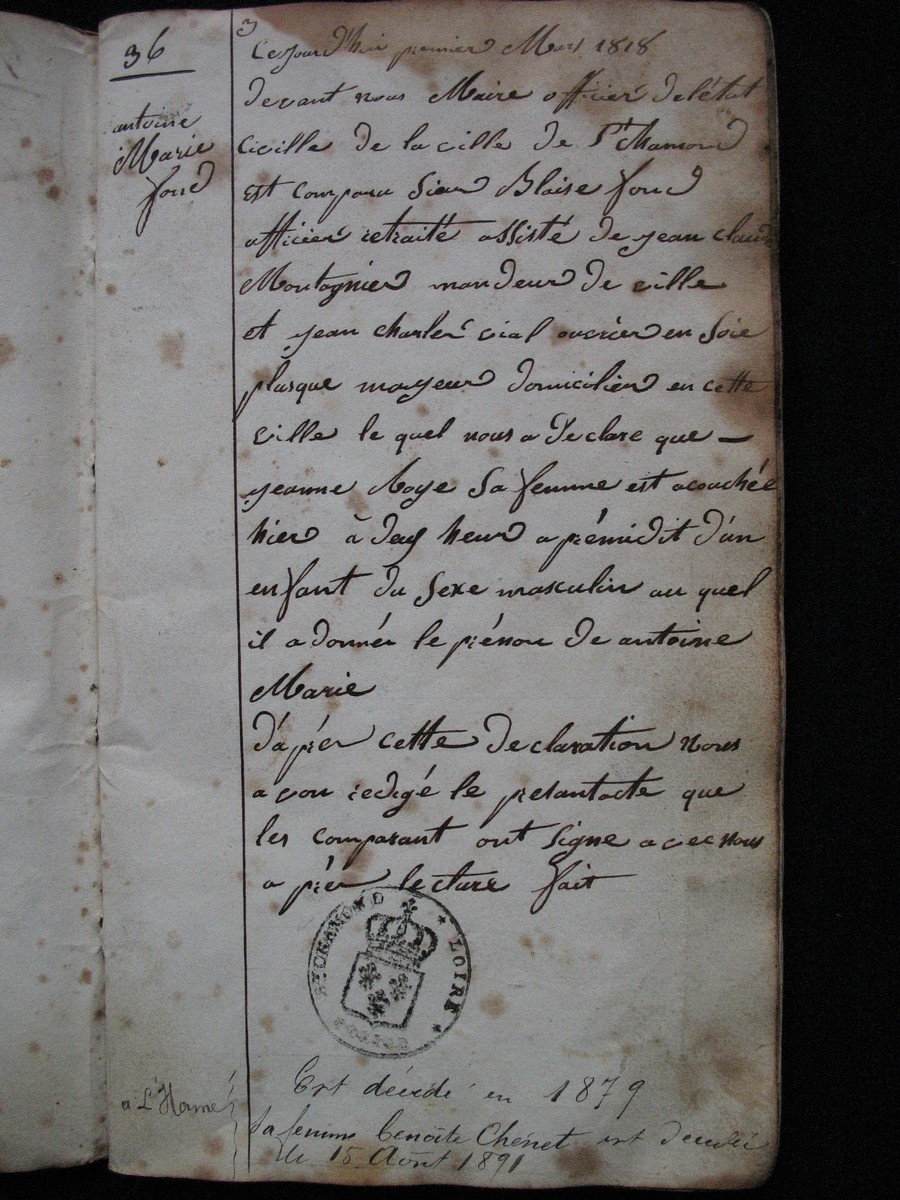 36
antoine
Marie
fond
3
Cejourd'hui premier Mars 1818
devant nous Maire officier deletat
civille de la ville de St Chamond
est comparu Sieur Blaise fond
officier retraité assisté de jean claude
Montagnier mandeur de ville
et jean charler vial ouvrier en Soie
plusque mayeur domicilier en cette
ville le quel nous a declare que —
jeanne Roye Sa femme est acouchée
hier à deux heur aprémidit d'un
enfant du Sexe masculin au quel
il a donnér le prénom de antoine
Marie
d'apér cette declaration Nous
avon redigé le presantacte que
les comparant ont Signe avec Nous
aprér lecture fait
ST CHAMOND * LOIRE *
Est décédé en 1879
a L'Horme
Sa femme Benoîte Chénet est decedée
le 15 Août 1891